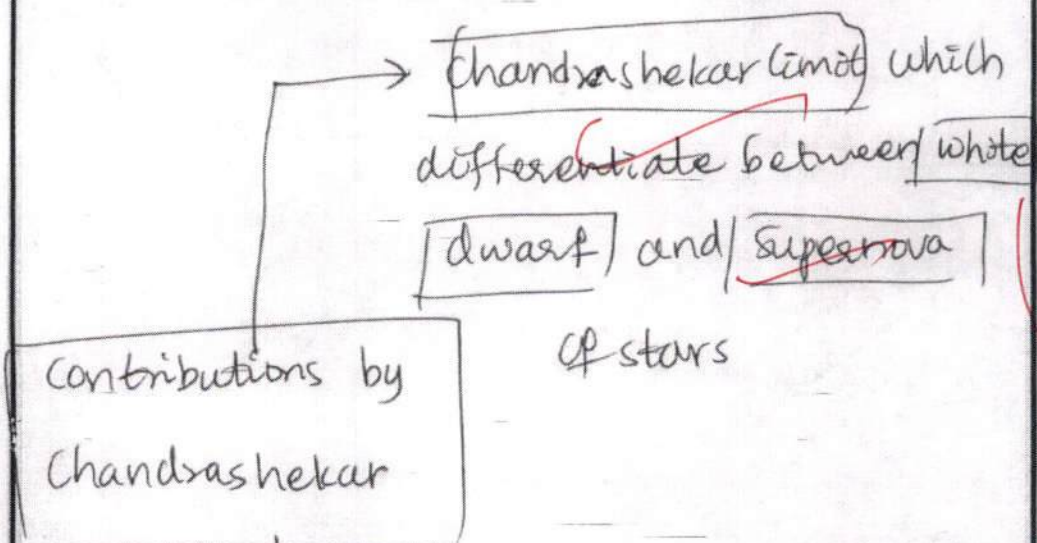 Chandrashekar limit which
differentiate between white
dwarf and supernova
of stars
Contributions by
Chandrashekar